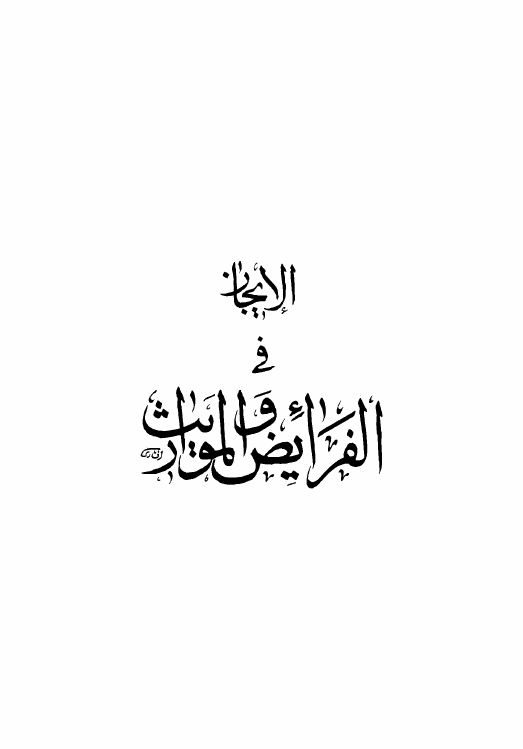 الإيجاز
في
الفَرَائِض وَالمواريث